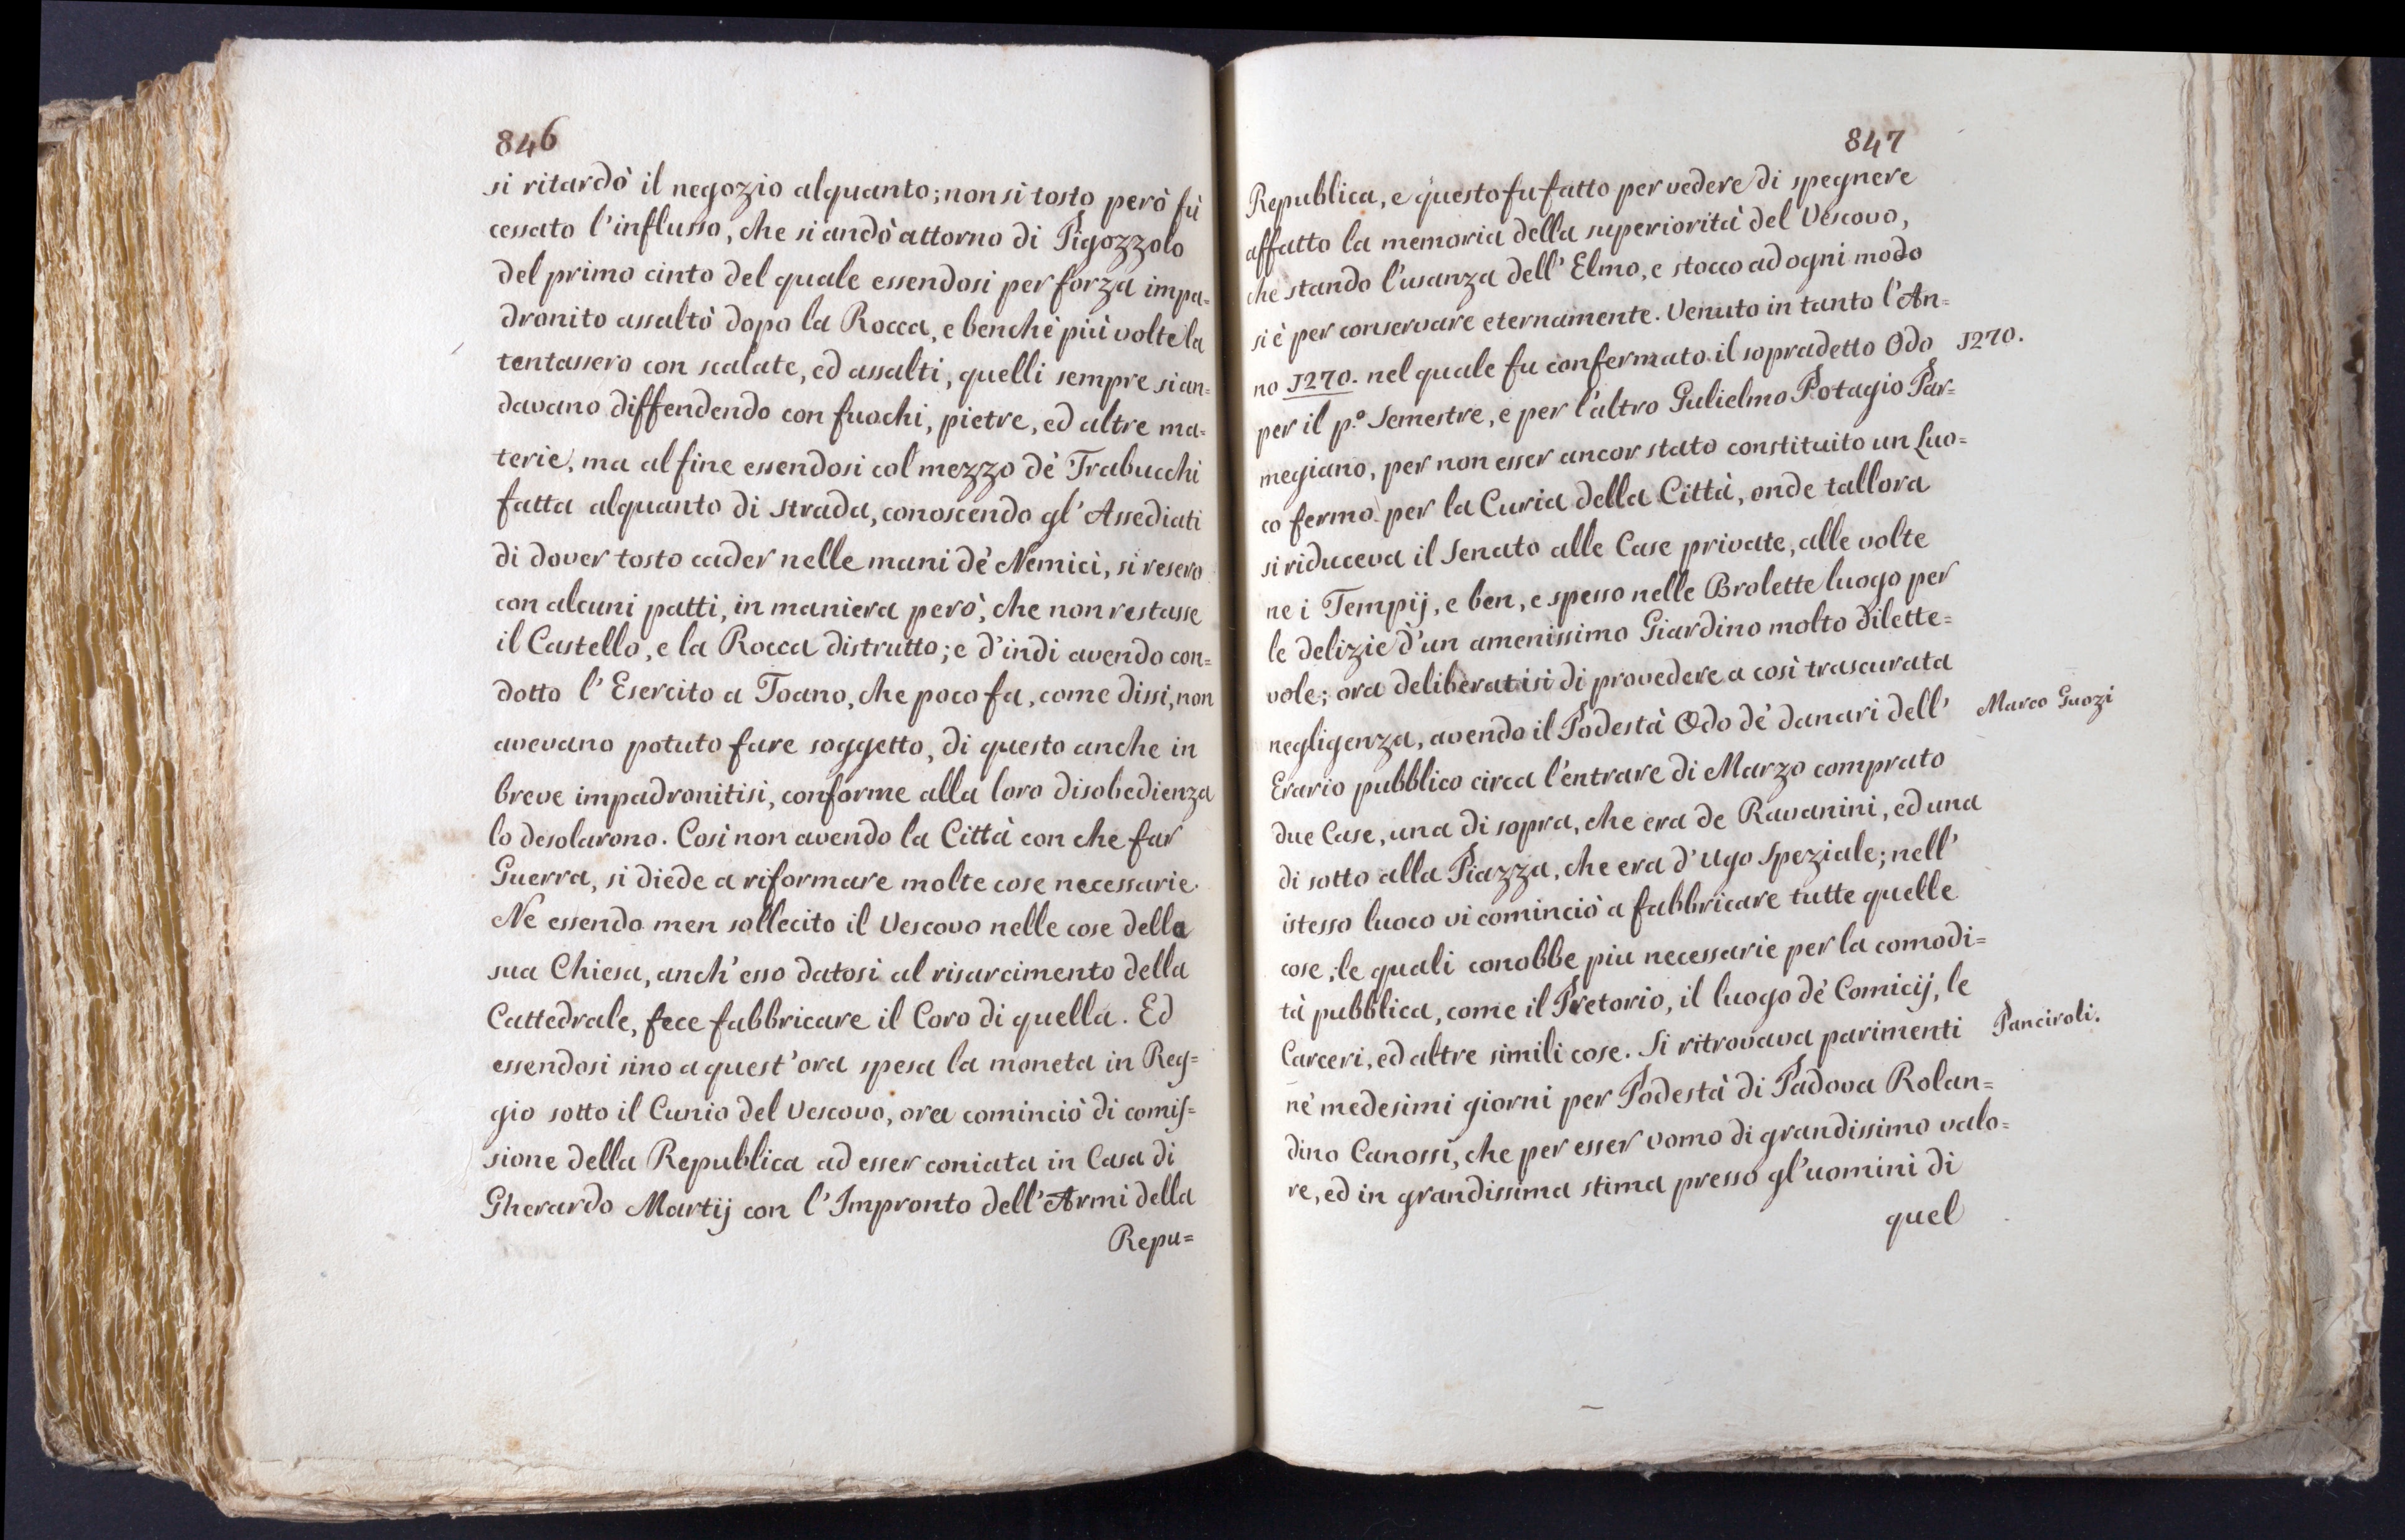 846
si ritardò il negozio alquanto; non si tosto però fù
cessato l'influsso, che si andò attorno di Pigozzolo
del primo cinto del quale essendosi per forza impa=
dronito assaltò dopo la Rocca, e benchè più volte la
tentassero con scalate, ed assalti, quelli sempre si an=
davano diffendendo con fuochi, pietre, ed altre ma=
terie, ma al fine essendosi col mezzo dè Trabucchi
fatta alquanto di strada, conoscendo gl'Assediati
di dover tosto cader nelle mani dè Nemici, si resero
con alcuni patti, in maniera però, che non restasse
il Castello, e la Rocca distrutto; e d'indi avendo con=
dotto l'Esercito a Toano, che poco fa, come dissi, non
avevano potuto fare soggetto, di questo anche in
breve impadronitisi, conforme alla loro disobedienza
lo desolarono. Così non avendo la Città con che far
Guerra, si diede a riformare molte cose necessarie.
Ne essendo men sollecito il Vescovo nelle cose della
sua Chiesa, anch'esso datosi al risarcimento della
Cattedrale, fece fabbricare il Coro di quella. Ed
essendosi sino a quest'ora spesa la moneta in Reg=
gio sotto il Cunio del Vescovo, ora cominciò di comis=
sione della Republica ad esser coniata in Casa di
Gherardo Martij con l'Impronto dell'Armi della
Repu=
847
Republica, e questo fu fatto per vedere di spegnere
affatto la memoria della superiorità del Vescovo,
che stando l'usanza dell'Elmo, e stocco ad ogni modo
si è per conservare eternamente. Venuto in tanto l'An=
no 1270. nel quale fu confermato il sopradetto Odo
1270.
per il p.º Semestre, e per l'altro Gulielmo Potagio Par=
megiano, per non esser ancor stato constituito un Luo=
co fermo per la Curia della Città, onde tallora
si riduceva il Senato alle Case private, alle volte
ne i Tempij, e ben, e spesso nelle Brolette luogo per
le delizie d'un amenissimo Giardino molto dilette=
vole; ora deliberatisi di provedere a così trascurata
negligenza, avendo il Podestà Odo dè danari dell'
Marco Guozi
Erario pubblico circa l'entrare di Marzo comprato
due Case, una di sopra, che era de Ravanini, ed una
di sotto alla Piazza, che era d'Ugo Speziale; nell'
istesso luoco vi cominciò a fabbricare tutte quelle
cose, le quali conobbe piu necessarie per la comodi=
tà pubblica, come il Pretorio, il luogo dè Comicij, le
Carceri, ed altre simili cose. Si ritrovava parimenti
Panciroli.
nè medesimi giorni per Podestà di Padova Rolan=
dino Canossi, che per esser vomo di grandissimo valo=
re, ed in grandissima stima presso gl'uomini di
quel